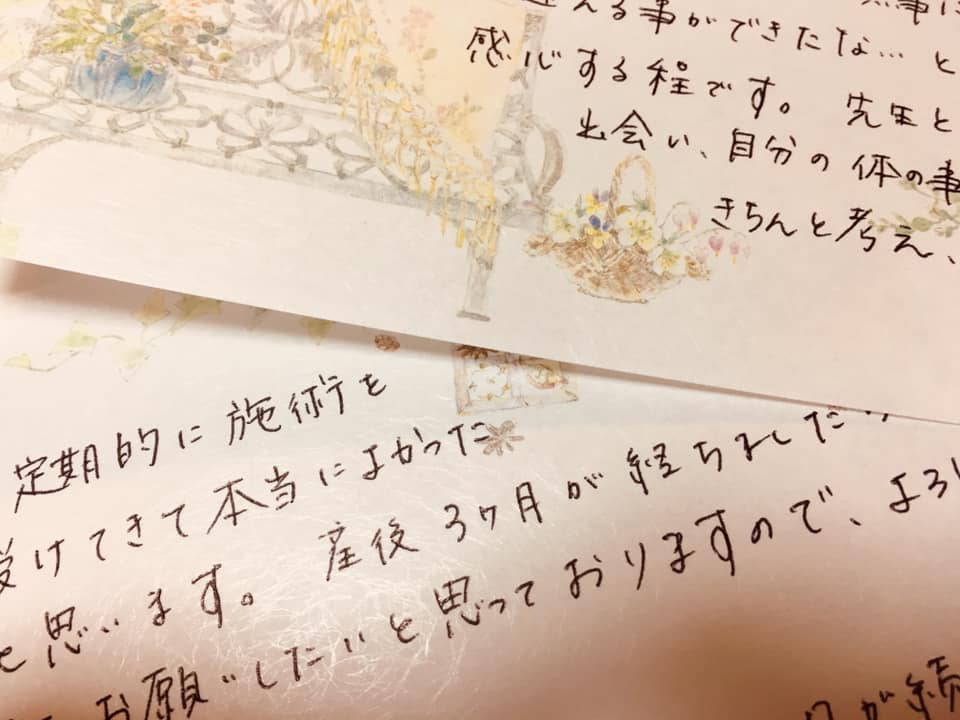 無事に
迎える事ができたな… と
感心する程です。 先生と
出会い、自分の体の事
きちんと考え、
定期的に施術を
受けてきて本当によかった
と思います。 産後3ヶ月が経ちました
お願いしたいと思っておりますので、よろし
が続